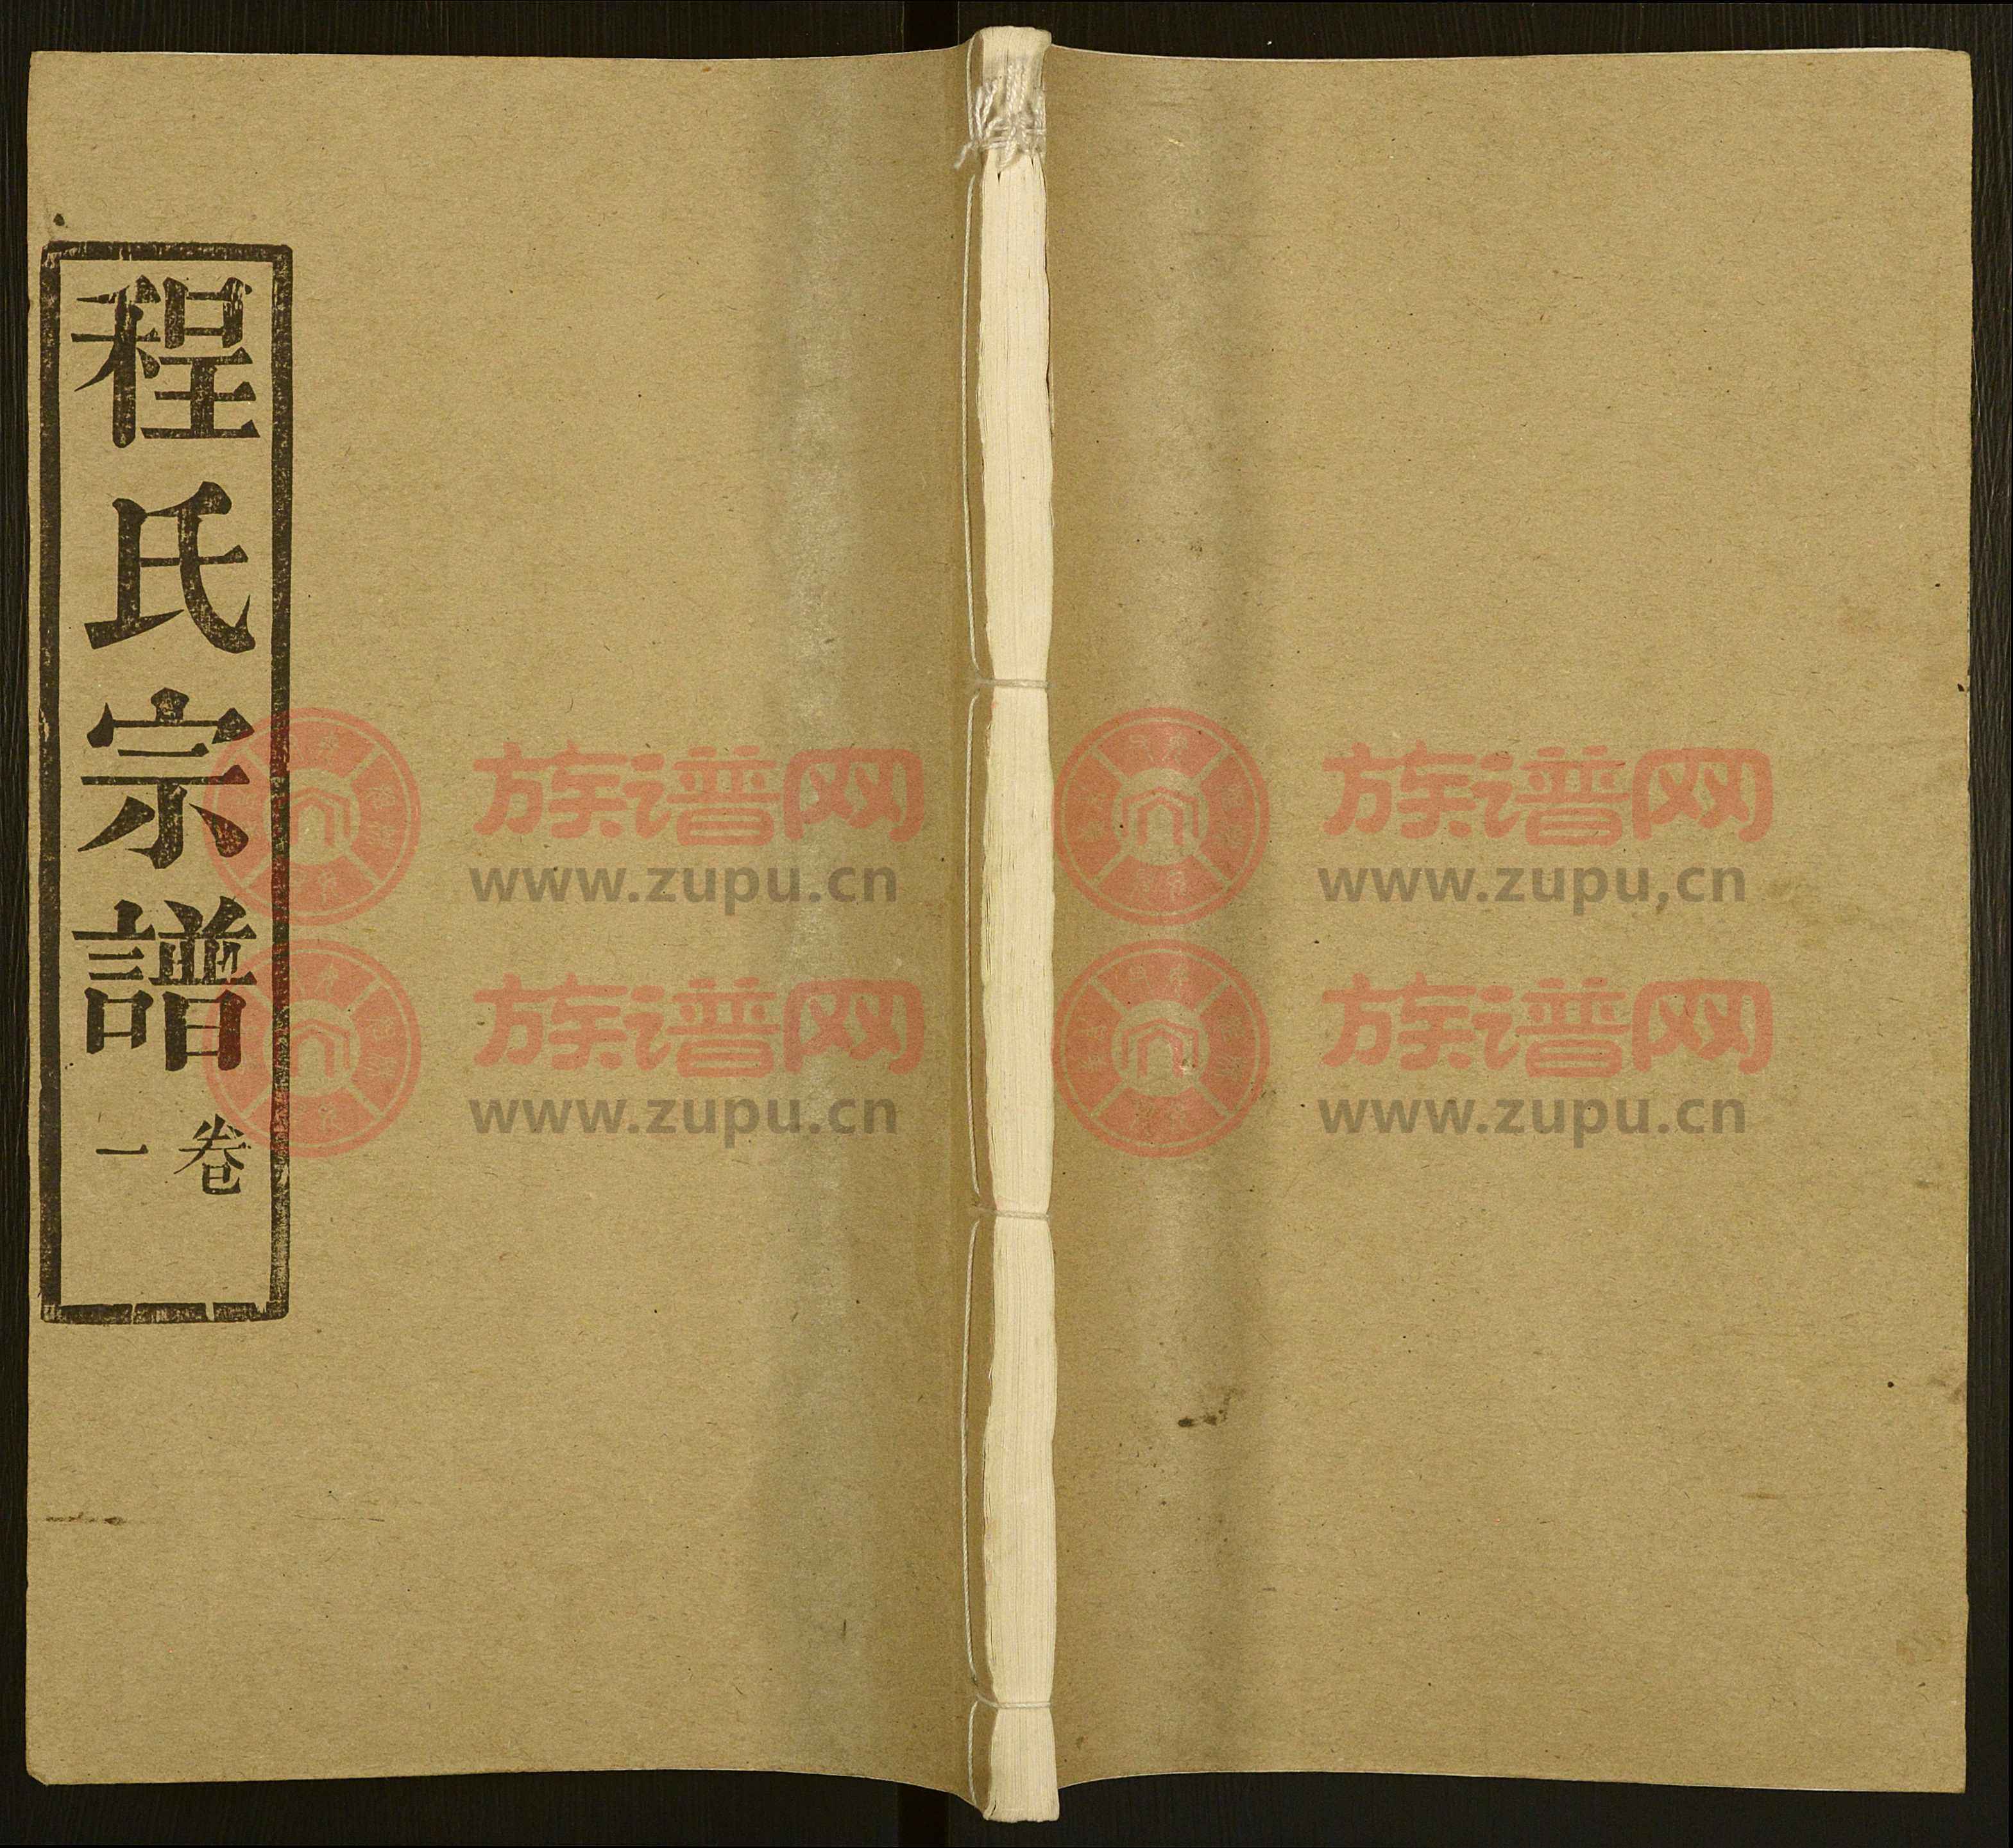 程氏宗譜
卷一
族谱网
www.zupu.cn
族谱网
www.zupu.cn
族谱网
www.zupu.cn
族谱网
www.zupu.cn